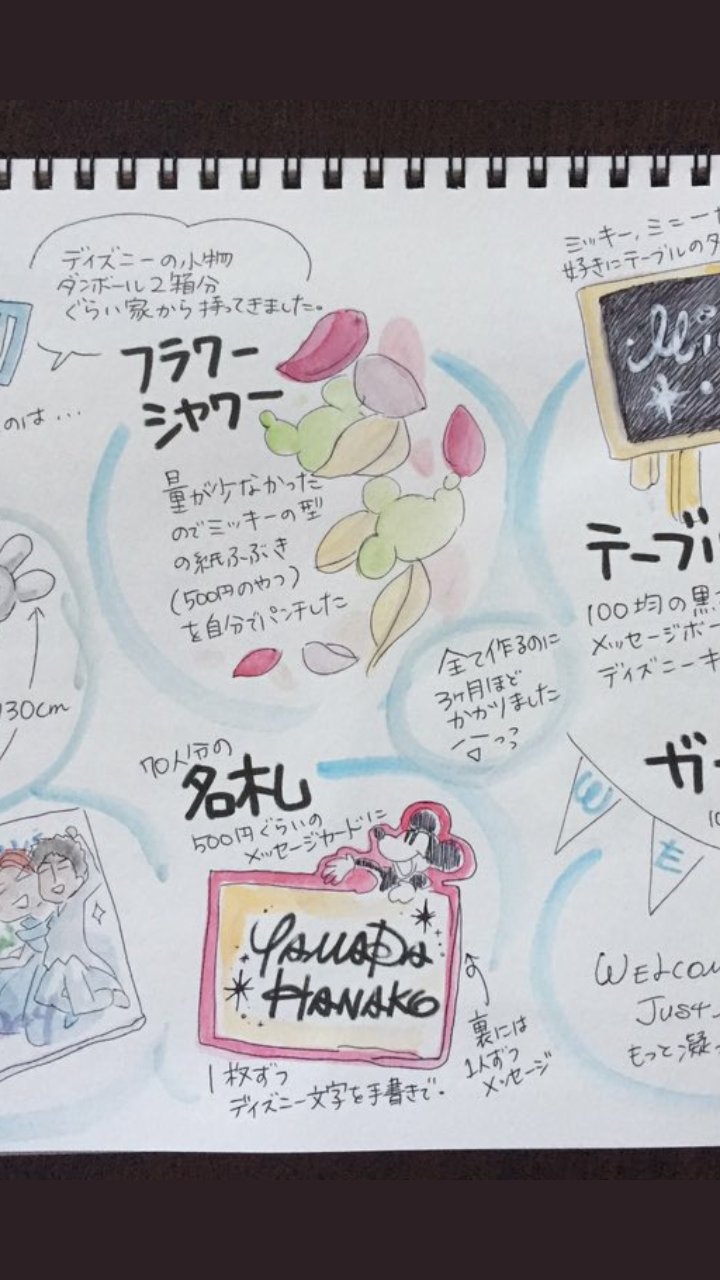 ディズニーの小物
ダンボール2箱分
ぐらい家から持ってきました。
のは...
フラワー
シャワー
量が少なかった
のでミッキーの型
の紙ふぶき
(500円のやつ)
を自分でパンチした
30cm
ミッキー、ミニー
好きにテーブルの
Mi
テーブル
100均の黒
メッセージボー
ディズニーキ
全て作るのに
3ヶ月ほど
かかりました
70人分の
名札
500円ぐらいの
メッセージカードに
YAMADA
HANAKO
裏には
1人ずつ
メッセージ
1枚ずつ
ディズニー文字を手書きで。
ガ
10
W
E
WELCOM
JUST
もっと凝っ